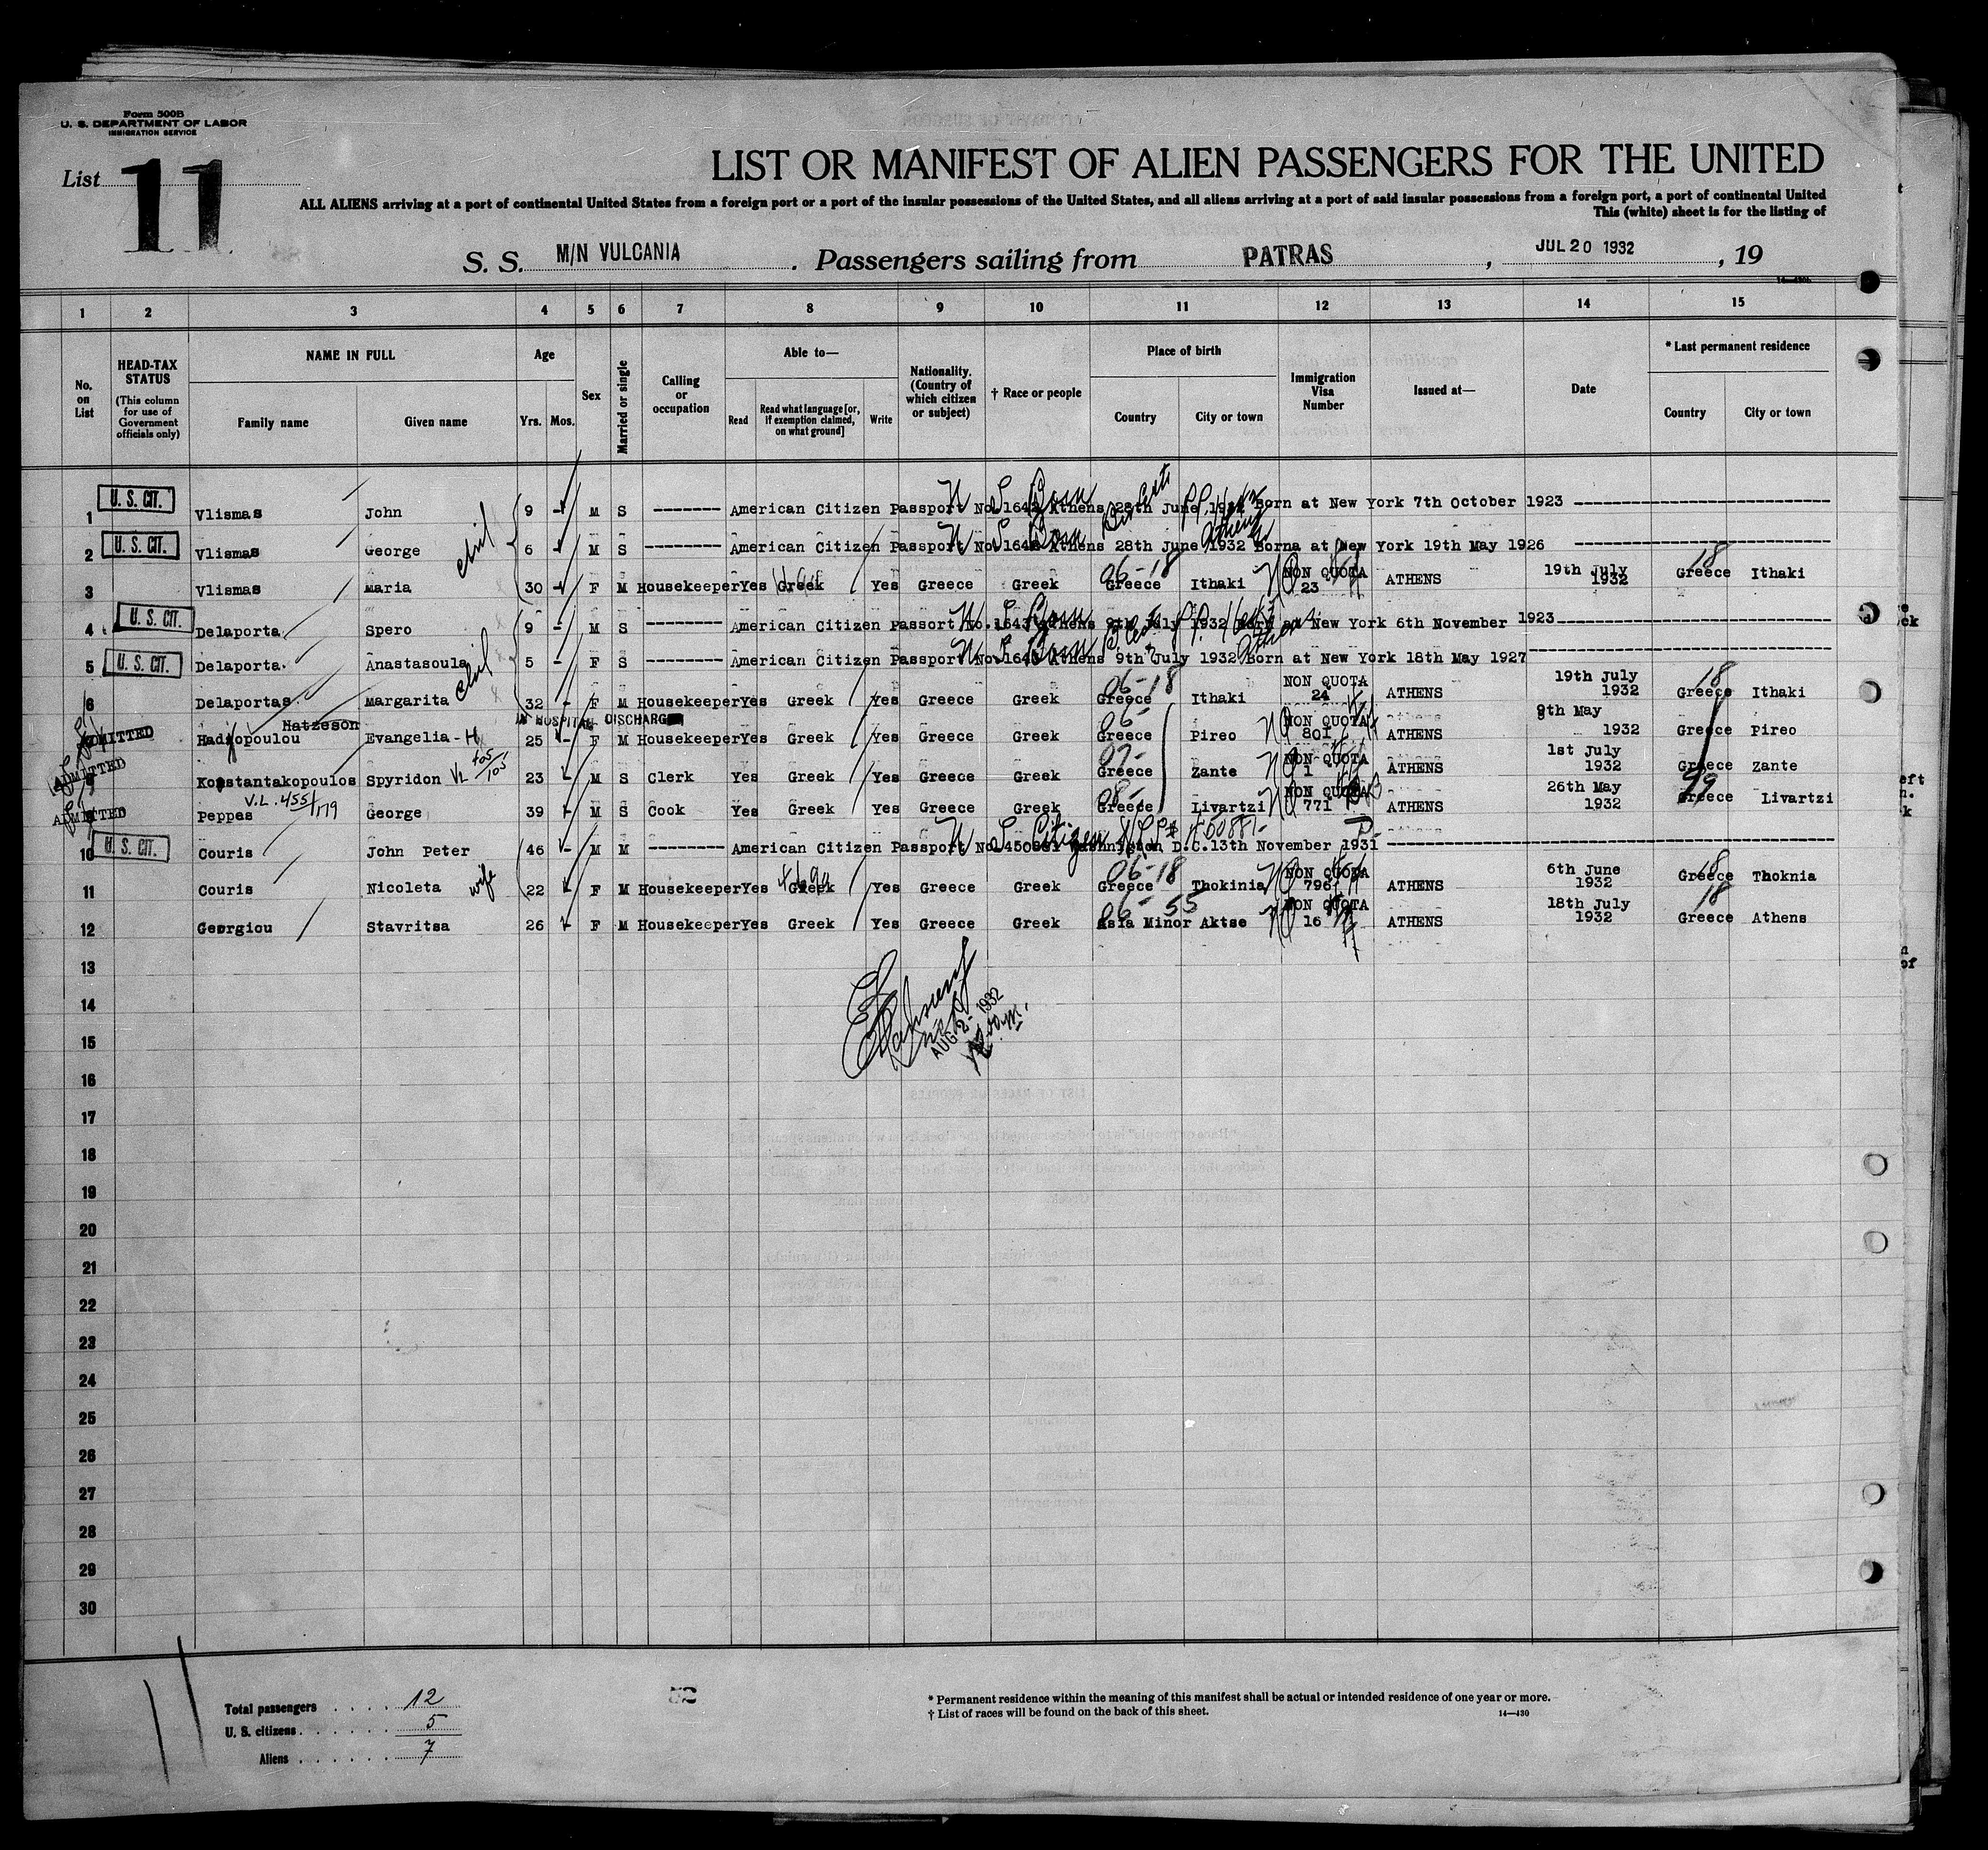 Form 500B
U. S. DEPARTMENT OF LABOR
IMMIGRATION SERVICE
List 11
LIST OR MANIFEST OF ALIEN PASSENGERS FOR THE UNITED
ALL ALIENS arriving at a port of continental United States from a foreign port or a port of the insular possessions of the United States, and all aliens arriving at a port of said insular possessions from a foreign port, a port of continental United
This (white) sheet is for the listing of
S. S. M/N VULCANIA. Passengers sailing from PATRAS, JUL 20 1932, 19
14—430b
1 2 3 4 5 6 7 8 9 10 11 12 13 14 15
No. on List
HEAD-TAX STATUS (This column for use of Government officials only)
NAME IN FULL Family name Given name
Age Yrs. Mos.
Sex
Married or single
Calling or occupation
Able to— Read Read what language [or, if exemption claimed, on what ground] Write
Nationality. (Country of which citizen or subject)
† Race or people
Place of birth Country City or town
Immigration Visa Number
Issued at—
Date
* Last permanent residence Country City or town
1 U. S. CIT. Vlismas John 9 - M S -------- American Citizen Passport No. 1642 Athens 28th June 1932 Born at New York 7th October 1923 --------
2 U. S. CIT. Vlismas George 6 - M S -------- American Citizen Passport No. 1642 Athens 28th June 1932 Borna at New York 19th May 1926 --------
3 Vlismas Maria 30 - F M Housekeeper Yes Greek Yes Greece Greek Greece Ithaki NON QUOTA 23 ATHENS 19th July 1932 Greece Ithaki
4 U. S. CIT. Delaporta Spero 9 - M S -------- American Citizen Passort No. 1643 Athens 9th July 1932 Born at New York 6th November 1923 --------
5 U. S. CIT. Delaporta Anastasoula 5 - F S -------- American Citizen Passport No. 1643 Athens 9th July 1932 Born at New York 18th May 1927 --------
6 Delaportas Margarita 32 - F M Housekeeper Yes Greek Yes Greece Greek Greece Ithaki NON QUOTA 24 ATHENS 19th July 1932 Greece Ithaki
Hatzeson IN HOSPITAL DISCHARGED
ADMITTED Hadjopoulou Evangelia - H 25 - F M Housekeeper Yes Greek Yes Greece Greek Greece Pireo NON QUOTA 801 ATHENS 9th May 1932 Greece Pireo
ADMITTED Konstantakopoulos Spyridon 23 - M S Clerk Yes Greek Yes Greece Greek Greece Zante NON QUOTA 1 ATHENS 1st July 1932 Greece Zante
V.L. 455/179
ADMITTED Peppas George 39 - M S Cook Yes Greek Yes Greece Greek Greece Livartzi NON QUOTA 771 ATHENS 26th May 1932 Greece Livartzi
10 U. S. CIT. Couris John Peter 46 - M M -------- American Citizen Passport No. 450881 Washington D.C. 13th November 1931 --------
11 Couris Nicoleta wife 22 - F M Housekeeper Yes Greek Yes Greece Greek Greece Thokinia NON QUOTA 796 ATHENS 6th June 1932 Greece Thoknia
12 Georgiou Stavritsa 26 - F M Housekeeper Yes Greek Yes Greece Greek Asia Minor Aktse NON QUOTA 16 ATHENS 18th July 1932 Greece Athens
13
14
AUG 2- 1932
15
16
17
18
19
20
21
22
23
24
25
26
27
28
29
30
Total passengers . . . . . 12
U. S. citizens . . . . . . . 5
Aliens . . . . . . . 7
* Permanent residence within the meaning of this manifest shall be actual or intended residence of one year or more.
† List of races will be found on the back of this sheet.
14—430